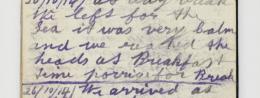 30/10/14) at day break
the left for the
Sea it was very calm
and we reached the
heads at Breakfast
time porris for Break
26/10/14) We arrived at